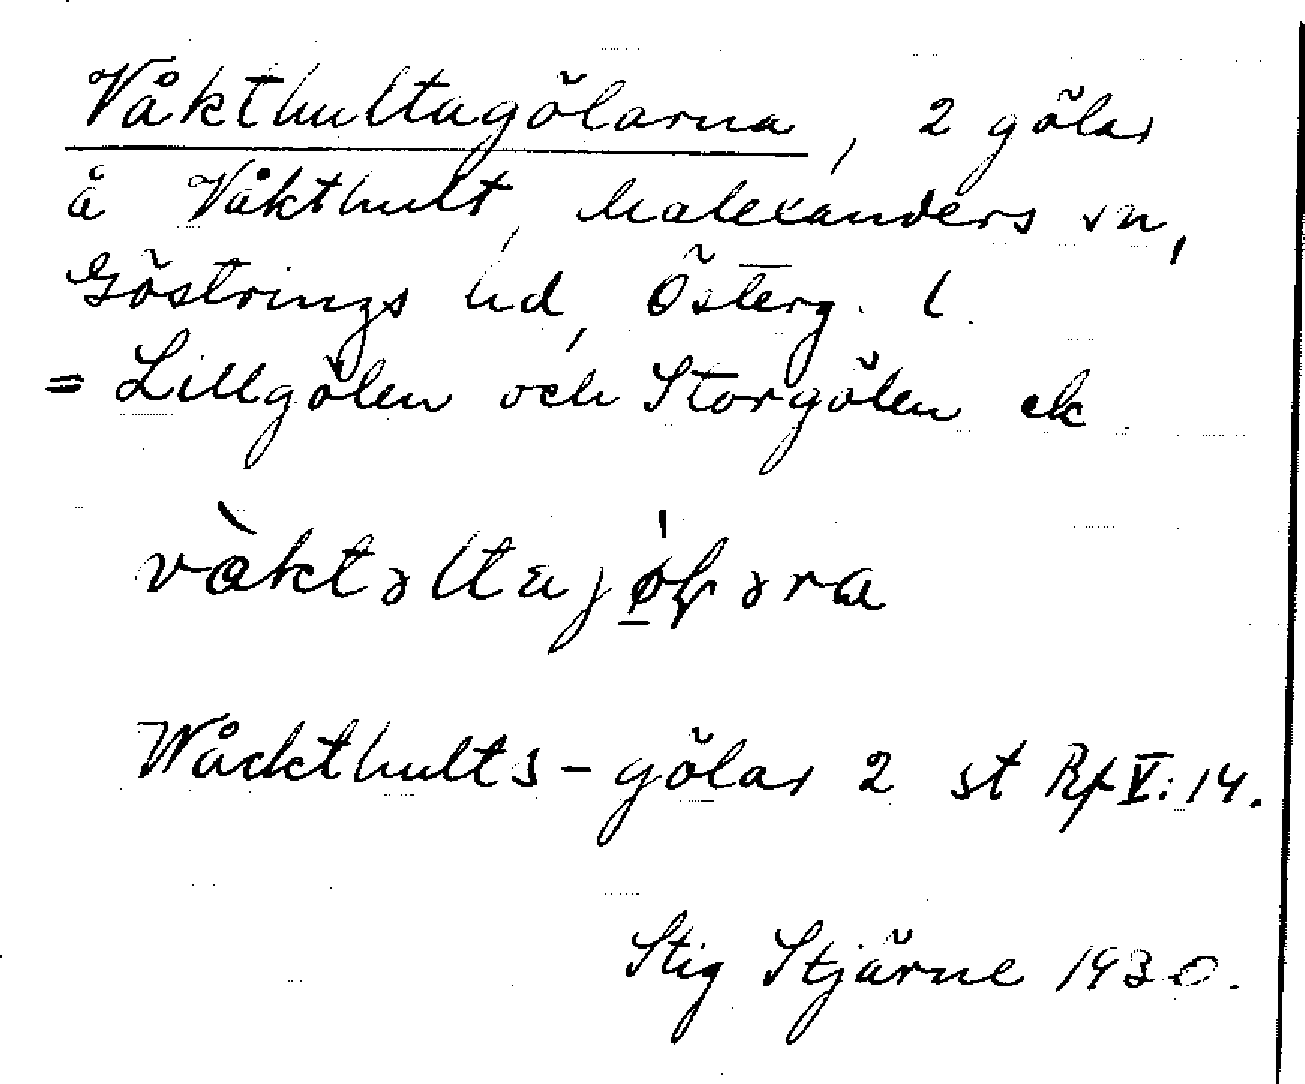 Våkthultagölarna, 2 gölar
å Våkthult, Malexanders sn,
Göstrings hd, Österg. l.
= Lillgölen och Storgölen ek
vàktəltajøɽəra
Wåckthults-gölar 2 st Rf V:14.
Stig Stjärne 1930.